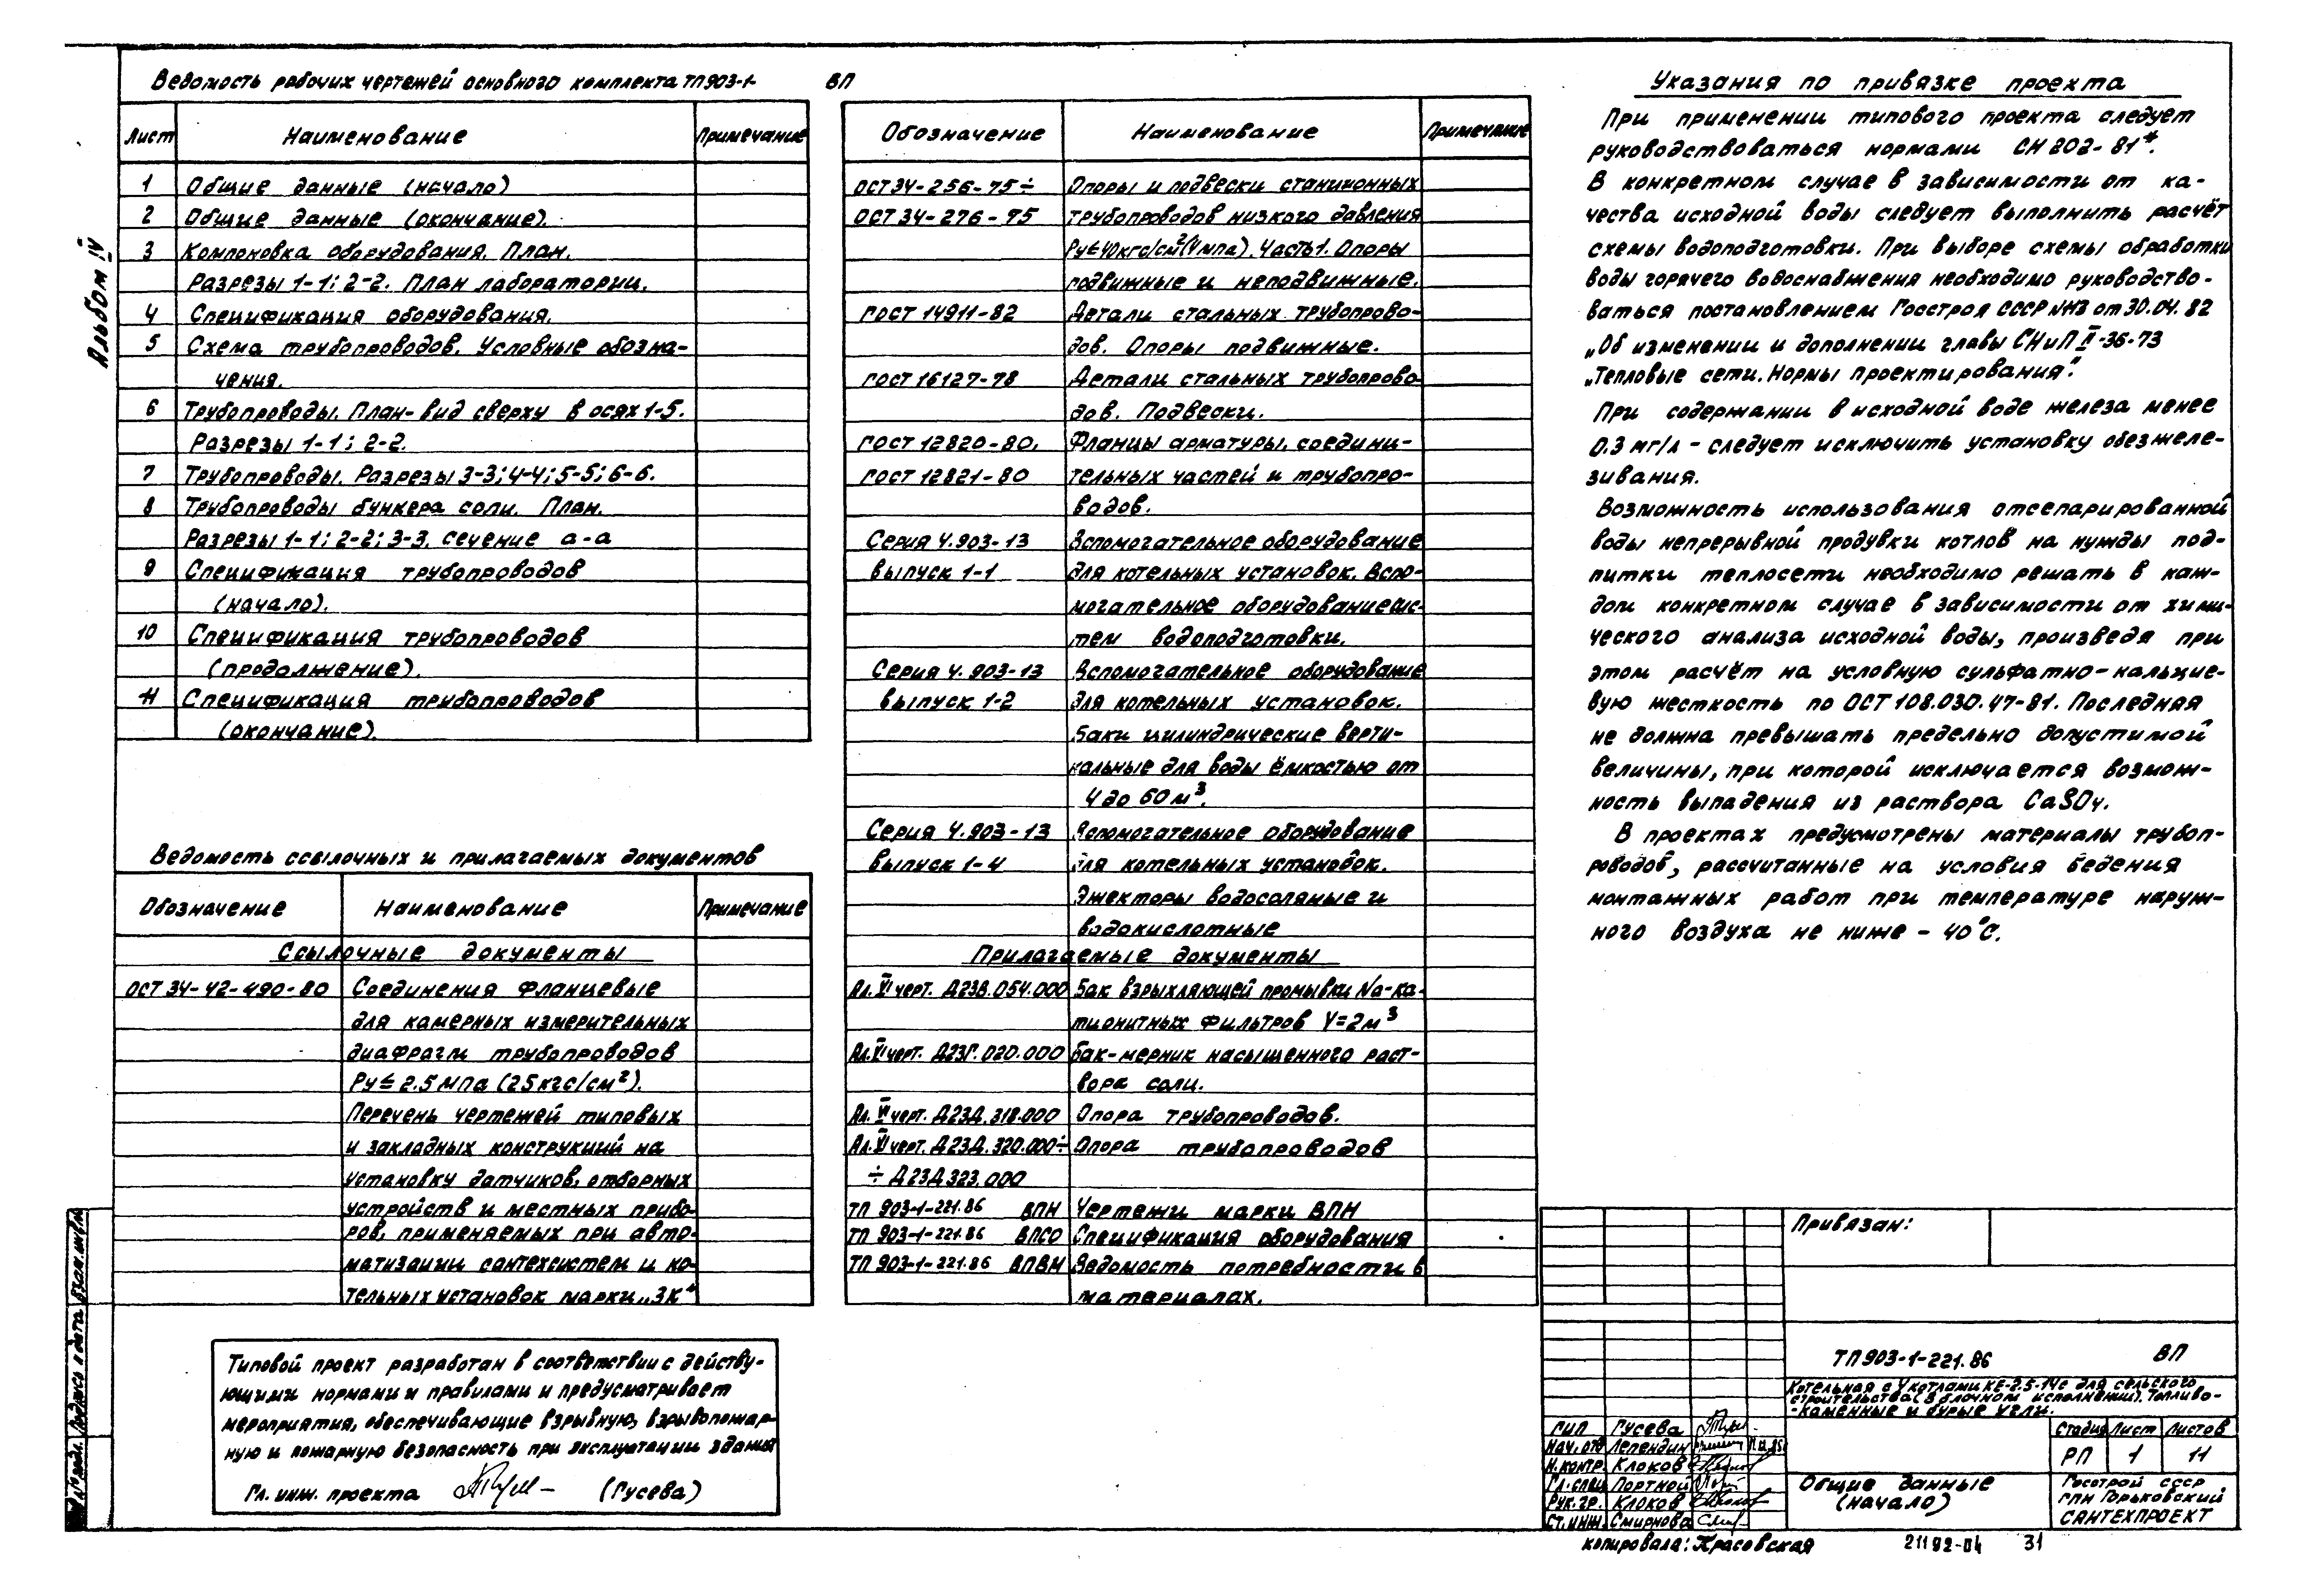 Альбом IV
Ведомость рабочих чертежей основного комплекта ТП903-1- ВП
Лист Наименование Примечание
1 Общие данные (начало)
2 Общие данные (окончание).
3 Компоновка оборудования. План.
Разрезы 1-1; 2-2. План лаборатории.
4 Спецификация оборудования.
5 Схема трубопроводов. Условные обозна-
чения.
6 Трубопроводы. План-вид сверху в осях 1-5.
Разрезы 1-1; 2-2.
7 Трубопроводы. Разрезы 3-3; 4-4; 5-5; 6-6.
8 Трубопроводы бункера соли. План.
Разрезы 1-1; 2-2; 3-3. сечение а-а
9 Спецификация трубопроводов
(начало).
10 Спецификация трубопроводов
(продолжение).
11 Спецификация трубопроводов
(окончание).
Ведомость ссылочных и прилагаемых документов
Обозначение Наименование Примечание
Ссылочные документы
ОСТ 34-42-490-80 Соединения фланцевые
для камерных измерительных
диафрагм трубопроводов
Ру≤2.5 МПа (25 кгс/см²).
Перечень чертежей типовых
и закладных конструкций на
установку датчиков, отборных
устройств и местных прибо-
ров, применяемых при авто-
матизации сантехсистем и ко-
тельных установок марки „ЗК"
Типовой проект разработан в соответствии с действу-
ющими нормами и правилами и предусматривает
мероприятия, обеспечивающие взрывную, взрывопожар-
ную и пожарную безопасность при эксплуатации здания
Гл. инж. проекта (Гусева)
Обозначение Наименование Примечание
ОСТ 34-256-75÷ Опоры и подвески станционных
ОСТ 34-276-75 трубопроводов низкого давления
Ру≤40кгс/см²(4мпа). Часть 1. Опоры
подвижные и неподвижные.
ГОСТ 14911-82 Детали стальных трубопрово-
дов. Опоры подвижные.
ГОСТ 16127-78 Детали стальных трубопрово-
дов. Подвески.
ГОСТ 12820-80, Фланцы арматуры, соедини-
ГОСТ 12821-80 тельных частей и трубопро-
водов.
Серия 4.903-13 Вспомогательное оборудование
выпуск 1-1 для котельных установок. Вспо-
могательное оборудование сис-
тем водоподготовки.
Серия 4.903-13 Вспомогательное оборудование
выпуск 1-2 для котельных установок.
Баки цилиндрические верти-
кальные для воды ёмкостью от
4 до 60 м³.
Серия 4.903-13 Вспомогательное оборудование
выпуск 1-4 для котельных установок.
Эжекторы водосоляные и
водокислотные
Прилагаемые документы
Ал. VI черт. Д23В.054.000 Бак взрыхляющей промывки Na-ка-
тионитных фильтров V=2м³
Ал. VI черт. Д23Г.020.000 Бак-мерник насыщенного раст-
вора соли.
Ал. VI черт. Д23Д.318.000 Опора трубопроводов.
Ал. VI черт. Д23Д.320.000÷ Опора трубопроводов
÷ Д23Д323.000
ТП 903-1-221.86 ВПН Чертежи марки ВПН
ТП 903-1-221.86 ВПСО Спецификация оборудования
ТП 903-1-221.86 ВПВМ Ведомость потребности в
материалах.
Указания по привязке проекта
При применении типового проекта следует
руководствоваться нормами СН 202-81*.
В конкретном случае в зависимости от ка-
чества исходной воды следует выполнить расчёт
схемы водоподготовки. При выборе схемы обработки
воды горячего водоснабжения необходимо руководство-
ваться постановлением Госстроя СССР №113 от 30.04.82
„Об изменении и дополнении главы СНиП II-36-73
„Тепловые сети. Нормы проектирования".
При содержании в исходной воде железа менее
0.3 мг/л - следует исключить установку обезжеле-
зивания.
Возможность использования отсепарированной
воды непрерывной продувки котлов на нужды под-
питки теплосети необходимо решать в каж-
дом конкретном случае в зависимости от хими-
ческого анализа исходной воды, произведя при
этом расчёт на условную сульфатно-кальцие-
вую жесткость по ОСТ 108.030.47-81. Последняя
не должна превышать предельно допустимой
величины, при которой исключается возмож-
ность выпадения из раствора CaSO4.
В проектах предусмотрены материалы трубоп-
роводов, рассчитанные на условия ведения
монтажных работ при температуре наруж-
ного воздуха не ниже - 40°С.
Привязан:
ТП903-1-221.86 ВП
Котельная с 4 котлами КЕ-2.5-14с для сельского
строительства (в блочном исполнении). Топливо-
-каменные и бурые угли.
ГИП Гусева
Нач. отд Лепендин
Н. контр. Клоков
Гл. спец Портной
Рук. гр. Клоков
Ст. инж. Смирнова
Общие данные
(начало)
Стадия Лист Листов
РП 1 11
Госстрой СССР
ГПИ Горьковский
САНТЕХПРОЕКТ
Инв.№ подл. Подпись и дата Взам. инв.№
копировала: Красовская 21192-04 31